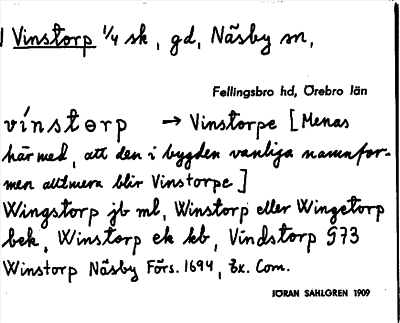 1 Vinstorp 1/4 sk, gd, Näsby sn,
Fellingsbro hd, Örebro län
vi´nstɵrp → Vinstorpe [Menas
härmed, att den i bygden vanliga namnfor-
men alltmera blir Vinstorpe]
Wingstorp jb ml, Winstorp eller Wingetorp
bek, Winstorp ek kb, Vindstorp G73
Winstorp Näsby Förs. 1694, Ex. Com.
JÖRAN SAHLGREN 1909